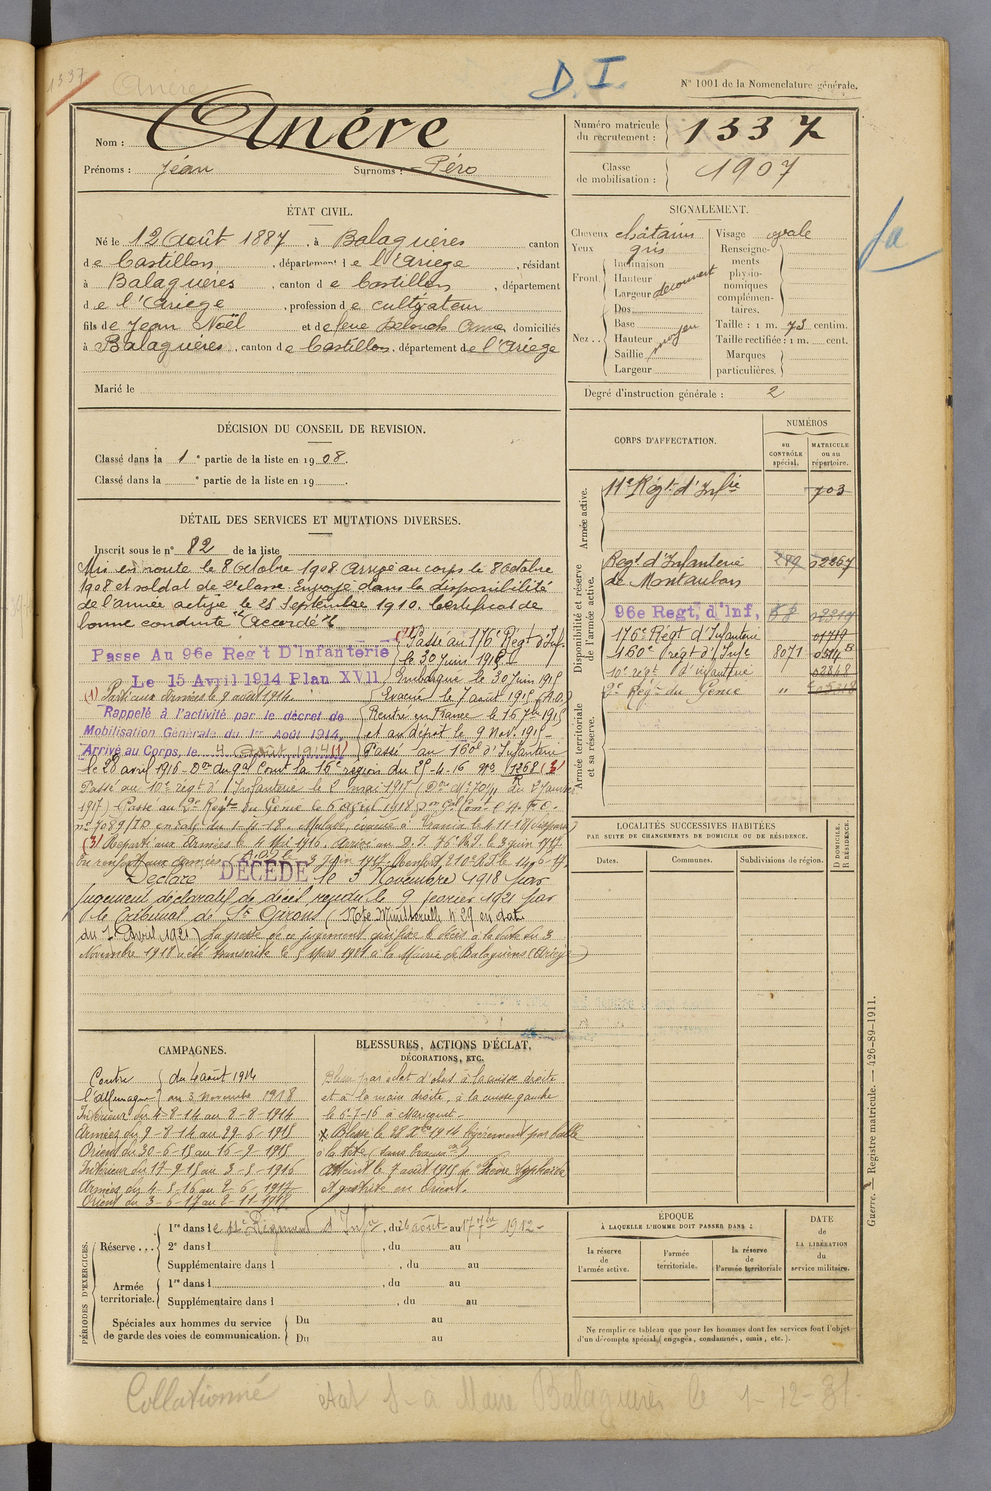 1337
Anére
D. I.
N° 1001 de la Nomenclature générale.
Nom : Anére
Prénoms : Jéan Surnoms : Péro
Numéro matricule du recrutement : 1337
Classe de mobilisation : 1907
ÉTAT CIVIL.
Né le 12 Août 1887, à Balaguéres canton
de Castillon, département de l'Ariege, résidant
à Balaguéres, canton de Castillon, département
de l'Ariege, profession de cultivateur
fils de Jean Noël et de feue Anne domiciliés
à Balaguéres, canton de Castillon, département de l'Ariege
Marié le
SIGNALEMENT.
Cheveux châtains
Yeux gris
Front
Inclinaison
Hauteur
Largeur découvert
Nez
Dos
Base
Hauteur moyen
Saillie
Largeur
Visage ovale
Renseignements physionomiques complémentaires.
Taille : 1 m. 73 centim.
Taille rectifiée : 1 m. cent.
Marques particulières.
Degré d'instruction générale : 2
fa
DÉCISION DU CONSEIL DE REVISION.
Classé dans la 1e partie de la liste en 1908.
Classé dans la e partie de la liste en 19 .
CORPS D'AFFECTATION.
NUMÉROS
au CONTRÔLE spécial.
MATRICULE ou au répertoire.
Armée active.
11e Régt d'Infie 703
Disponibilité et réserve de l'armée active.
Regt d'Infanterie 02267
de Montauban
96e Regt, d'Inf,
176e Régt d'Infanterie
160e régt d'Infie 8071
10e regt d'infanterie
2e Régt du Génie "
Armée territoriale et sa réserve.
DÉTAIL DES SERVICES ET MUTATIONS DIVERSES.
Inscrit sous le n° 82 de la liste
Mis en route le 8 Octobre 1908 arrivé au corps le 8 octobre
1908 et soldat de 2e classe. Envoyé dans la disponibilité
de l'année active le 25 Septembre 1910. Certificat de
bonne conduite "Accordé"
Passe Au 96e Reg't D'Infanterie
Le 15 Avril 1914 Plan XVII
(1) Parti aux Armées le 9 août 1914.
Rappelé à l'activité par le décret de
Mobilisation Générale du 1er Août 1914,
Arrivé au Corps, le 4 Août 1914 (1)
Passé au 176e Regt d'Inf.
le 30 Juin 1915
Embarqué le 30 juin 1915
Evacué le 7 août 1915
Rentré en France le 16 7bre 1915
et au dépot le 9 Nov. 1915
Passé au 160e d'Infanterie
le 28 avril 1916 - Don du gal Comt la 16e région du 25-4-16 (3)
Passé au 10e régt d'Infanterie le 2 mai 1917
1917) Passé au 2e Régt du Génie le 6 avril 1918
(3) Reparti aux Armées le 4 Mai 1916.
Declaré DÉCÉDÉ le 3 Novembre 1918 par
jugement déclaratif de décès rendu le 9 fevrier 1921 par
le Tribunal de St Girons (Note Ministérielle N° 29 en date
du 1er Avril 1921) La grosse de ce jugement qui fixe le décès à la date du 3
Novembre 1918 a été transcrite le 5 Mars 1921 à la Mairie de Balaguéres (Ariège)
LOCALITÉS SUCCESSIVES HABITÉES
PAR SUITE DE CHANGEMENTS DE DOMICILE OU DE RÉSIDENCE.
Dates. Communes. Subdivisions de région.
D DOMICILE. R RÉSIDENCE.
CAMPAGNES.
Contre du 4 août 1914
l'Allemagne au 3 Novembre 1918
Intérieur du 4-8-14 au 8-8-1914
Armées du 9-8-14 au 29-6-1915
Orient du 30-6-15 au 16-9-1915
Intérieur du 17-9-15 au 3-5-1916
Armées du 4-5-16 au 2-6-1917
Orient du 3-6-17 au 2-11-1918
BLESSURES, ACTIONS D'ÉCLAT, DÉCORATIONS, ETC.
Blessé par éclat d'obus à la cuisse droite
et à la main droite, à la cuisse gauche
le 6-7-16 à
Blessé le 28 1914 légèrement par balle
à la tête
Atteint le 7 août 1915 de fièvre typhoïde
et gastrite en Orient.
PÉRIODES D'EXERCICES.
Réserve
1re dans le 11e Régiment d'Infie, du 26 août au 17 7bre 1912
2e dans l , du au
Supplémentaire dans l , du au
Armée territoriale.
1re dans l , du au
Supplémentaire dans l , du au
Spéciales aux hommes du service de garde des voies de communication.
Du au
Du au
ÉPOQUE
À LAQUELLE L'HOMME DOIT PASSER DANS :
la réserve de l'armée active.
l'armée territoriale.
la réserve de l'armée territoriale
DATE de LA LIBÉRATION du service militaire.
Ne remplir ce tableau que pour les hommes dont les services font l'objet
d'un décompte spécial (engagés, condamnés, omis, etc.).
Guerre. Registre matricule. — 426-89-1911.
Collationné état S-a Maire Balaguéres le 1-12-31.